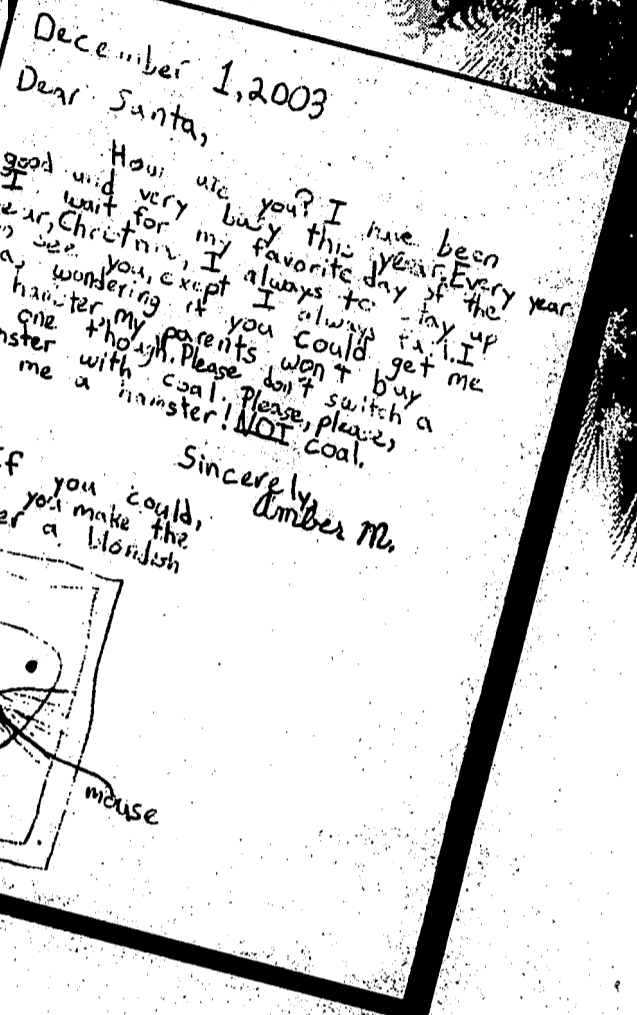 December 1, 2003
Dear Santa,
How are you? I have been
good and very busy this year. Every year
I wait for my favorite day of the
Christmas, I always to stay up
see you, exept I always fail. I
wondering if you could get me
hamster my parents won't buy
one though. Please don't switch a
with coal. Please, please,
me a hamster! NOT coal.
Sincerely,
Amber M.
If you could,
you make the
a blondish
mouse